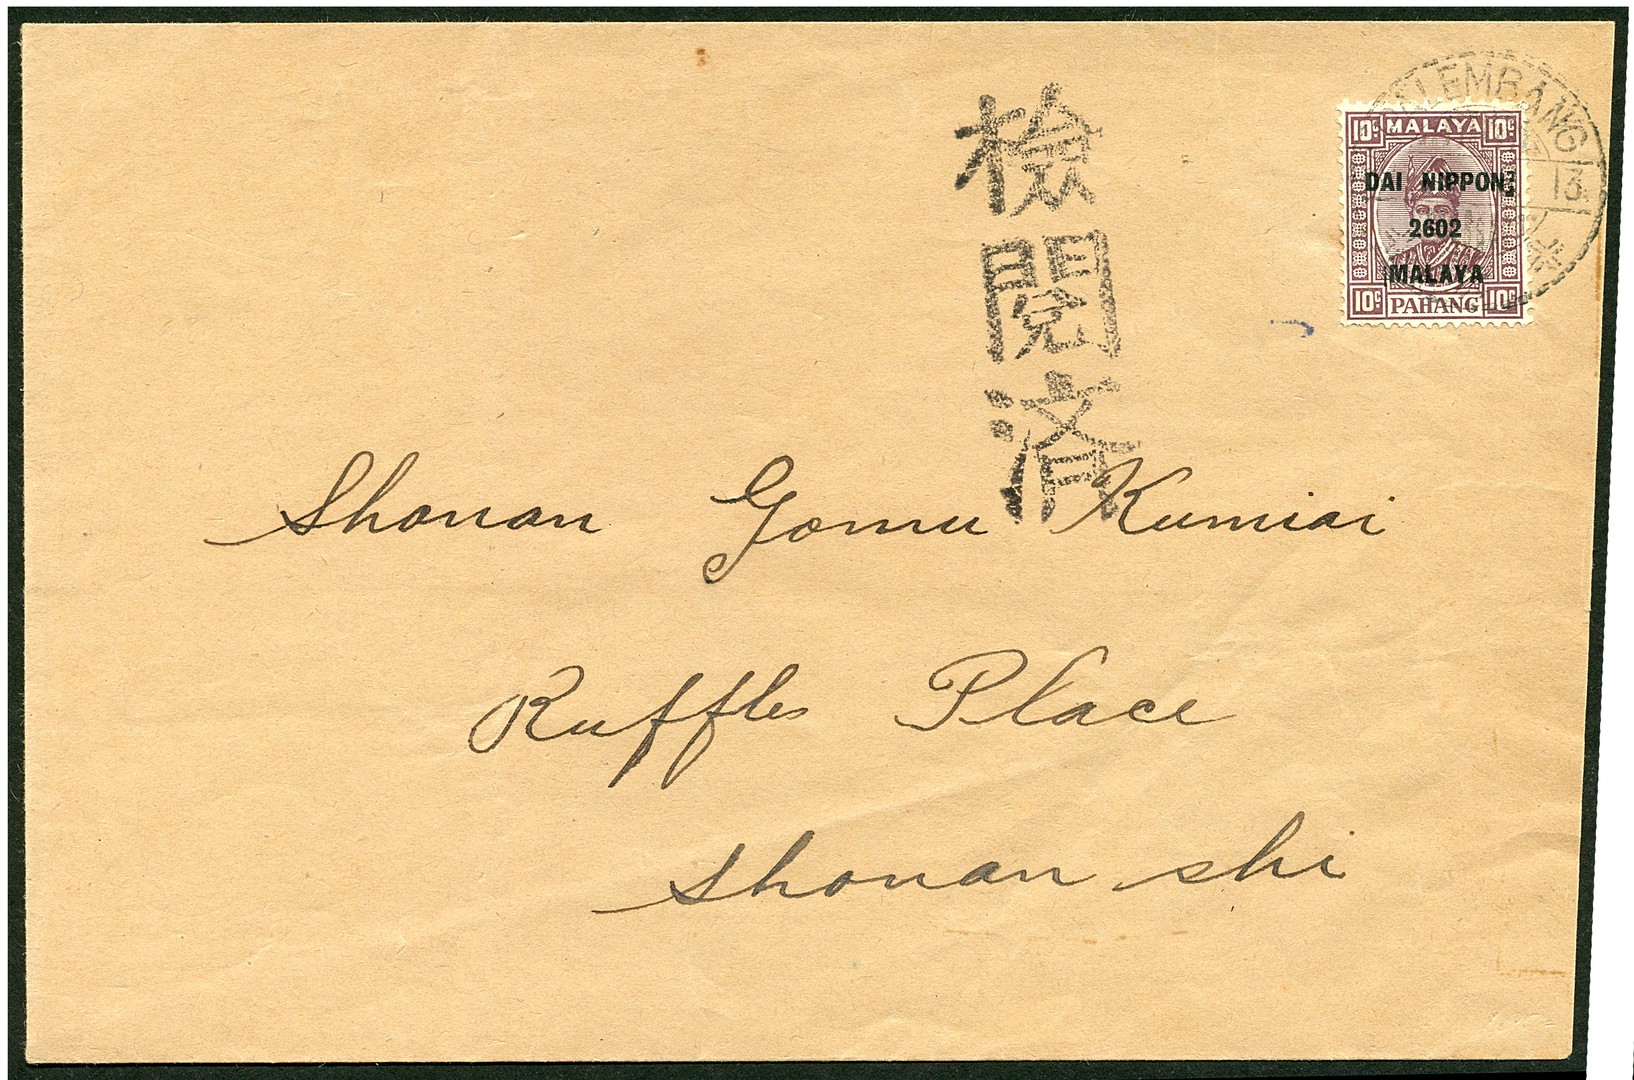 検閲済
PALEMBANG
13
10c MALAYA 10c
DAI NIPPON
2602
MALAYA
10c PAHANG 10c
Shonan Gomu Kumiai
Ruffles Place
Shonan shi